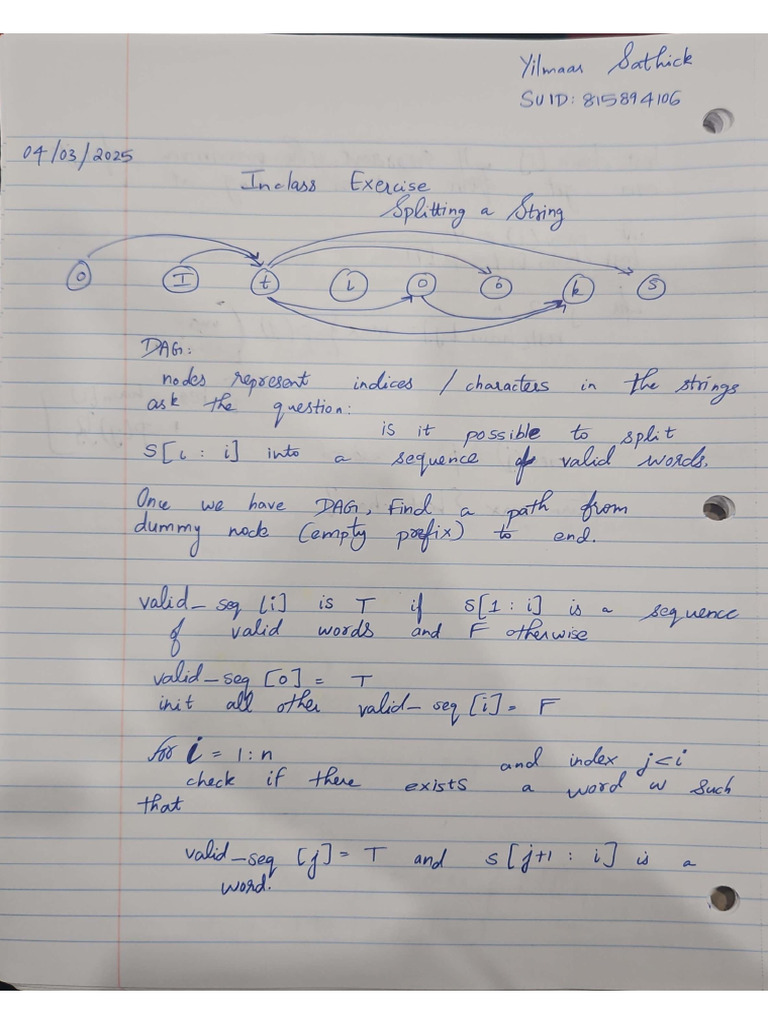 Yilmaas Sathick
SUID: 815894106
04/03/2025
Inclass Exercise
Splitting a String
0 I t i o o k s
DAG:
nodes represent indices / characters in the strings
ask the question:
is it possible to split
S[i : i] into a sequence of valid words.
Once we have DAG, Find a path from
dummy node (empty prefix) to end.
valid_seq [i] is T if S[1 : i] is a sequence
of valid words and F otherwise
valid_seq [0] = T
init all other valid_seq [i] = F
for i = 1:n and index j<i
check if there exists a word w such
that
valid_seq [j] = T and s[j+1 : i] is a
word.